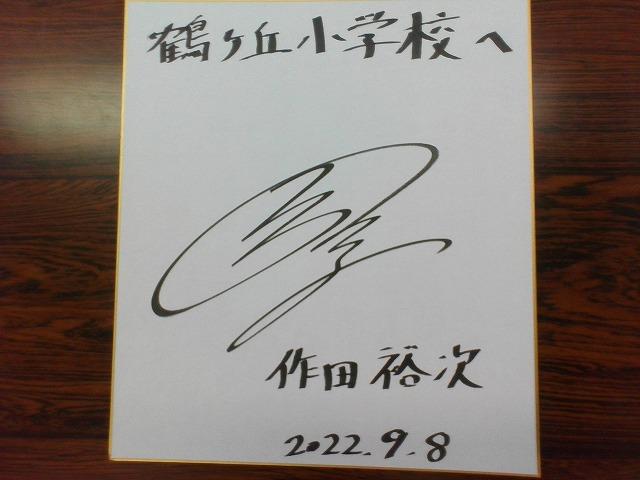 鶴ヶ丘小学校へ
作田裕次
2022.9.8